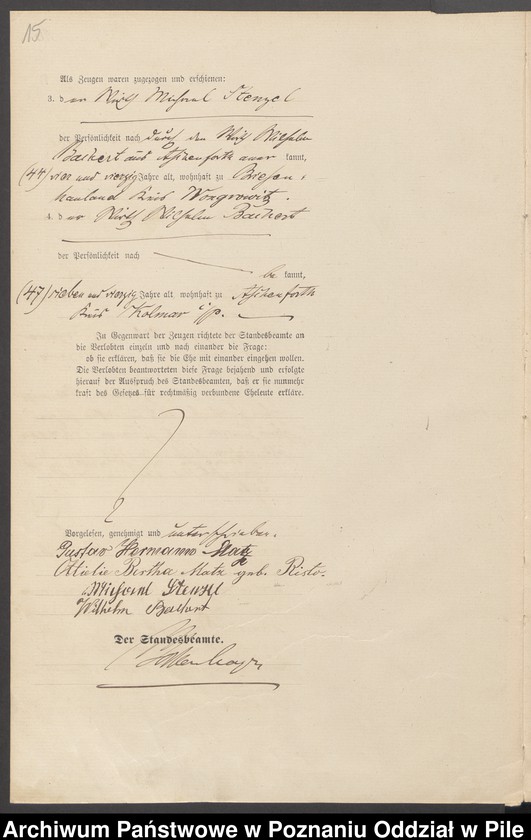 15
Als Zeugen waren zugezogen und erschienen:
3. der Wirth Michael Stenzel
der Persönlichkeit nach durch den Wirth Wilhelm
Backert aus aner kannt,
(44) vier und vierzig Jahre alt, wohnhaft zu Briesen,
hauland Kreis Wongrowitz.
4. der Wirth Wilhelm Backert
der Persönlichkeit nach
be kannt,
(47) sieben und vierzig Jahre alt, wohnhaft zu
Kreis Kolmar i/p.
In Gegenwart der Zeugen richtete der Standesbeamte an
die Verlobten einzeln und nach einander die Frage:
ob sie erklären, daß sie die Ehe mit einander eingehen wollen.
Die Verlobten beantworteten diese Frage bejahend und erfolgte
hierauf der Ausspruch des Standesbeamten, daß er sie nunmehr
kraft des Gesetzes für rechtmäßig verbundene Eheleute erkläre.
Vorgelesen, genehmigt und unterschrieben.
Gustav Hermann Matz
Ottielie Bertha Matz geb. Risto.
Michael Stenzel
Wilhelm Backert
Der Standesbeamte.
Archiwum Państwowe w Poznaniu Oddział w Pile